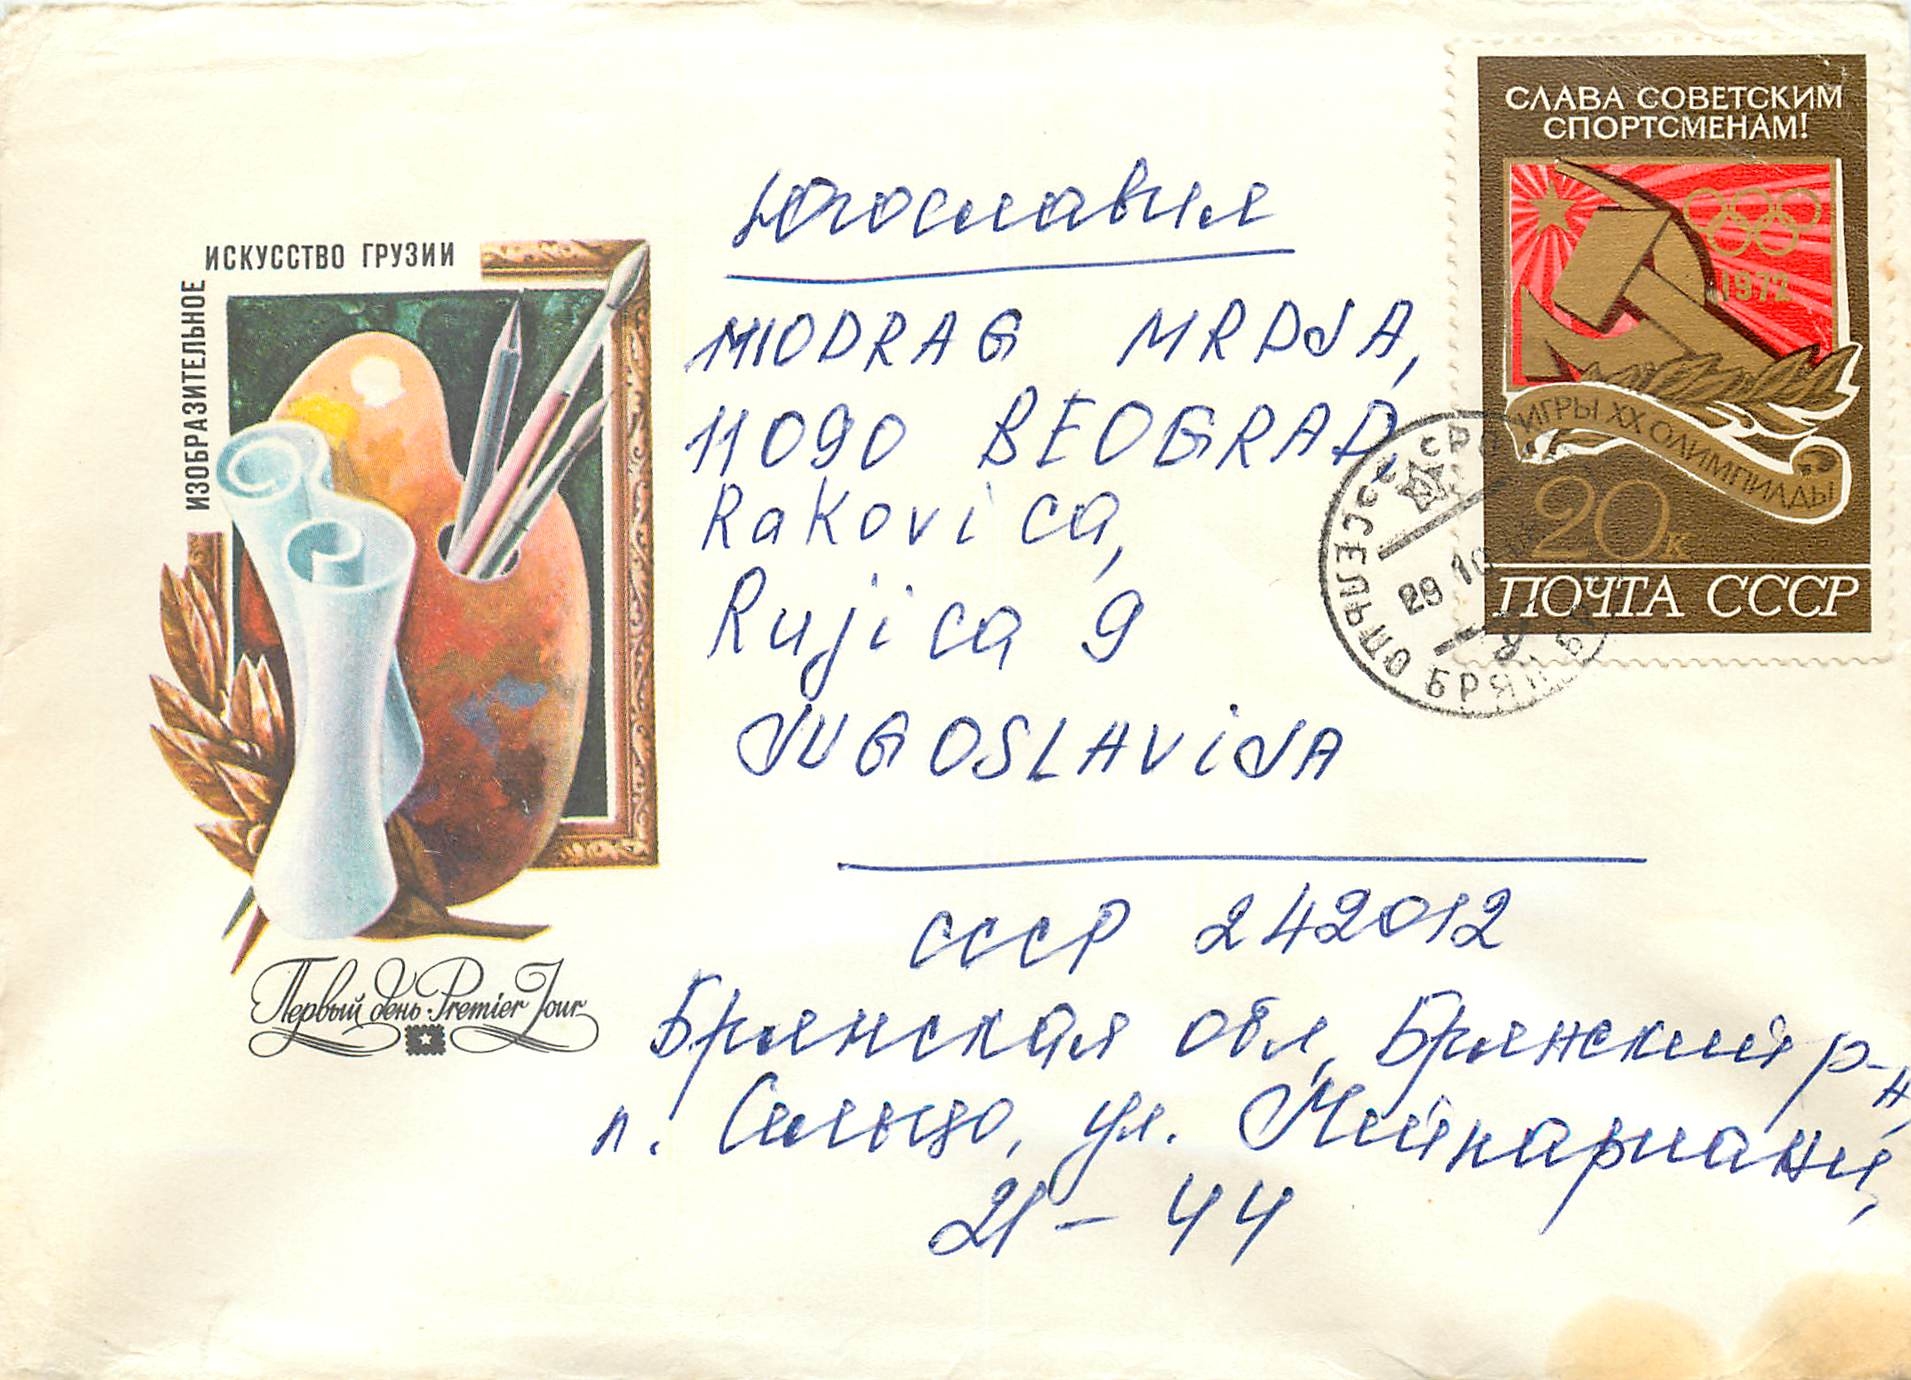 ИЗОБРАЗИТЕЛЬНОЕ
ИСКУССТВО ГРУЗИИ
Первый день · Premier Jour
СЛАВА СОВЕТСКИМ
СПОРТСМЕНАМ!
1972
ИГРЫ XX ОЛИМПИАДЫ
20к
ПОЧТА СССР
29 10
Югославия
MIODRAG MRDJA,
11090 BEOGRAD,
Rakovica,
Rujica 9
JUGOSLAVIJA
СССР 242012
Брянская обл, Брянский р-н,
п. Сельцо, ул.
21-44